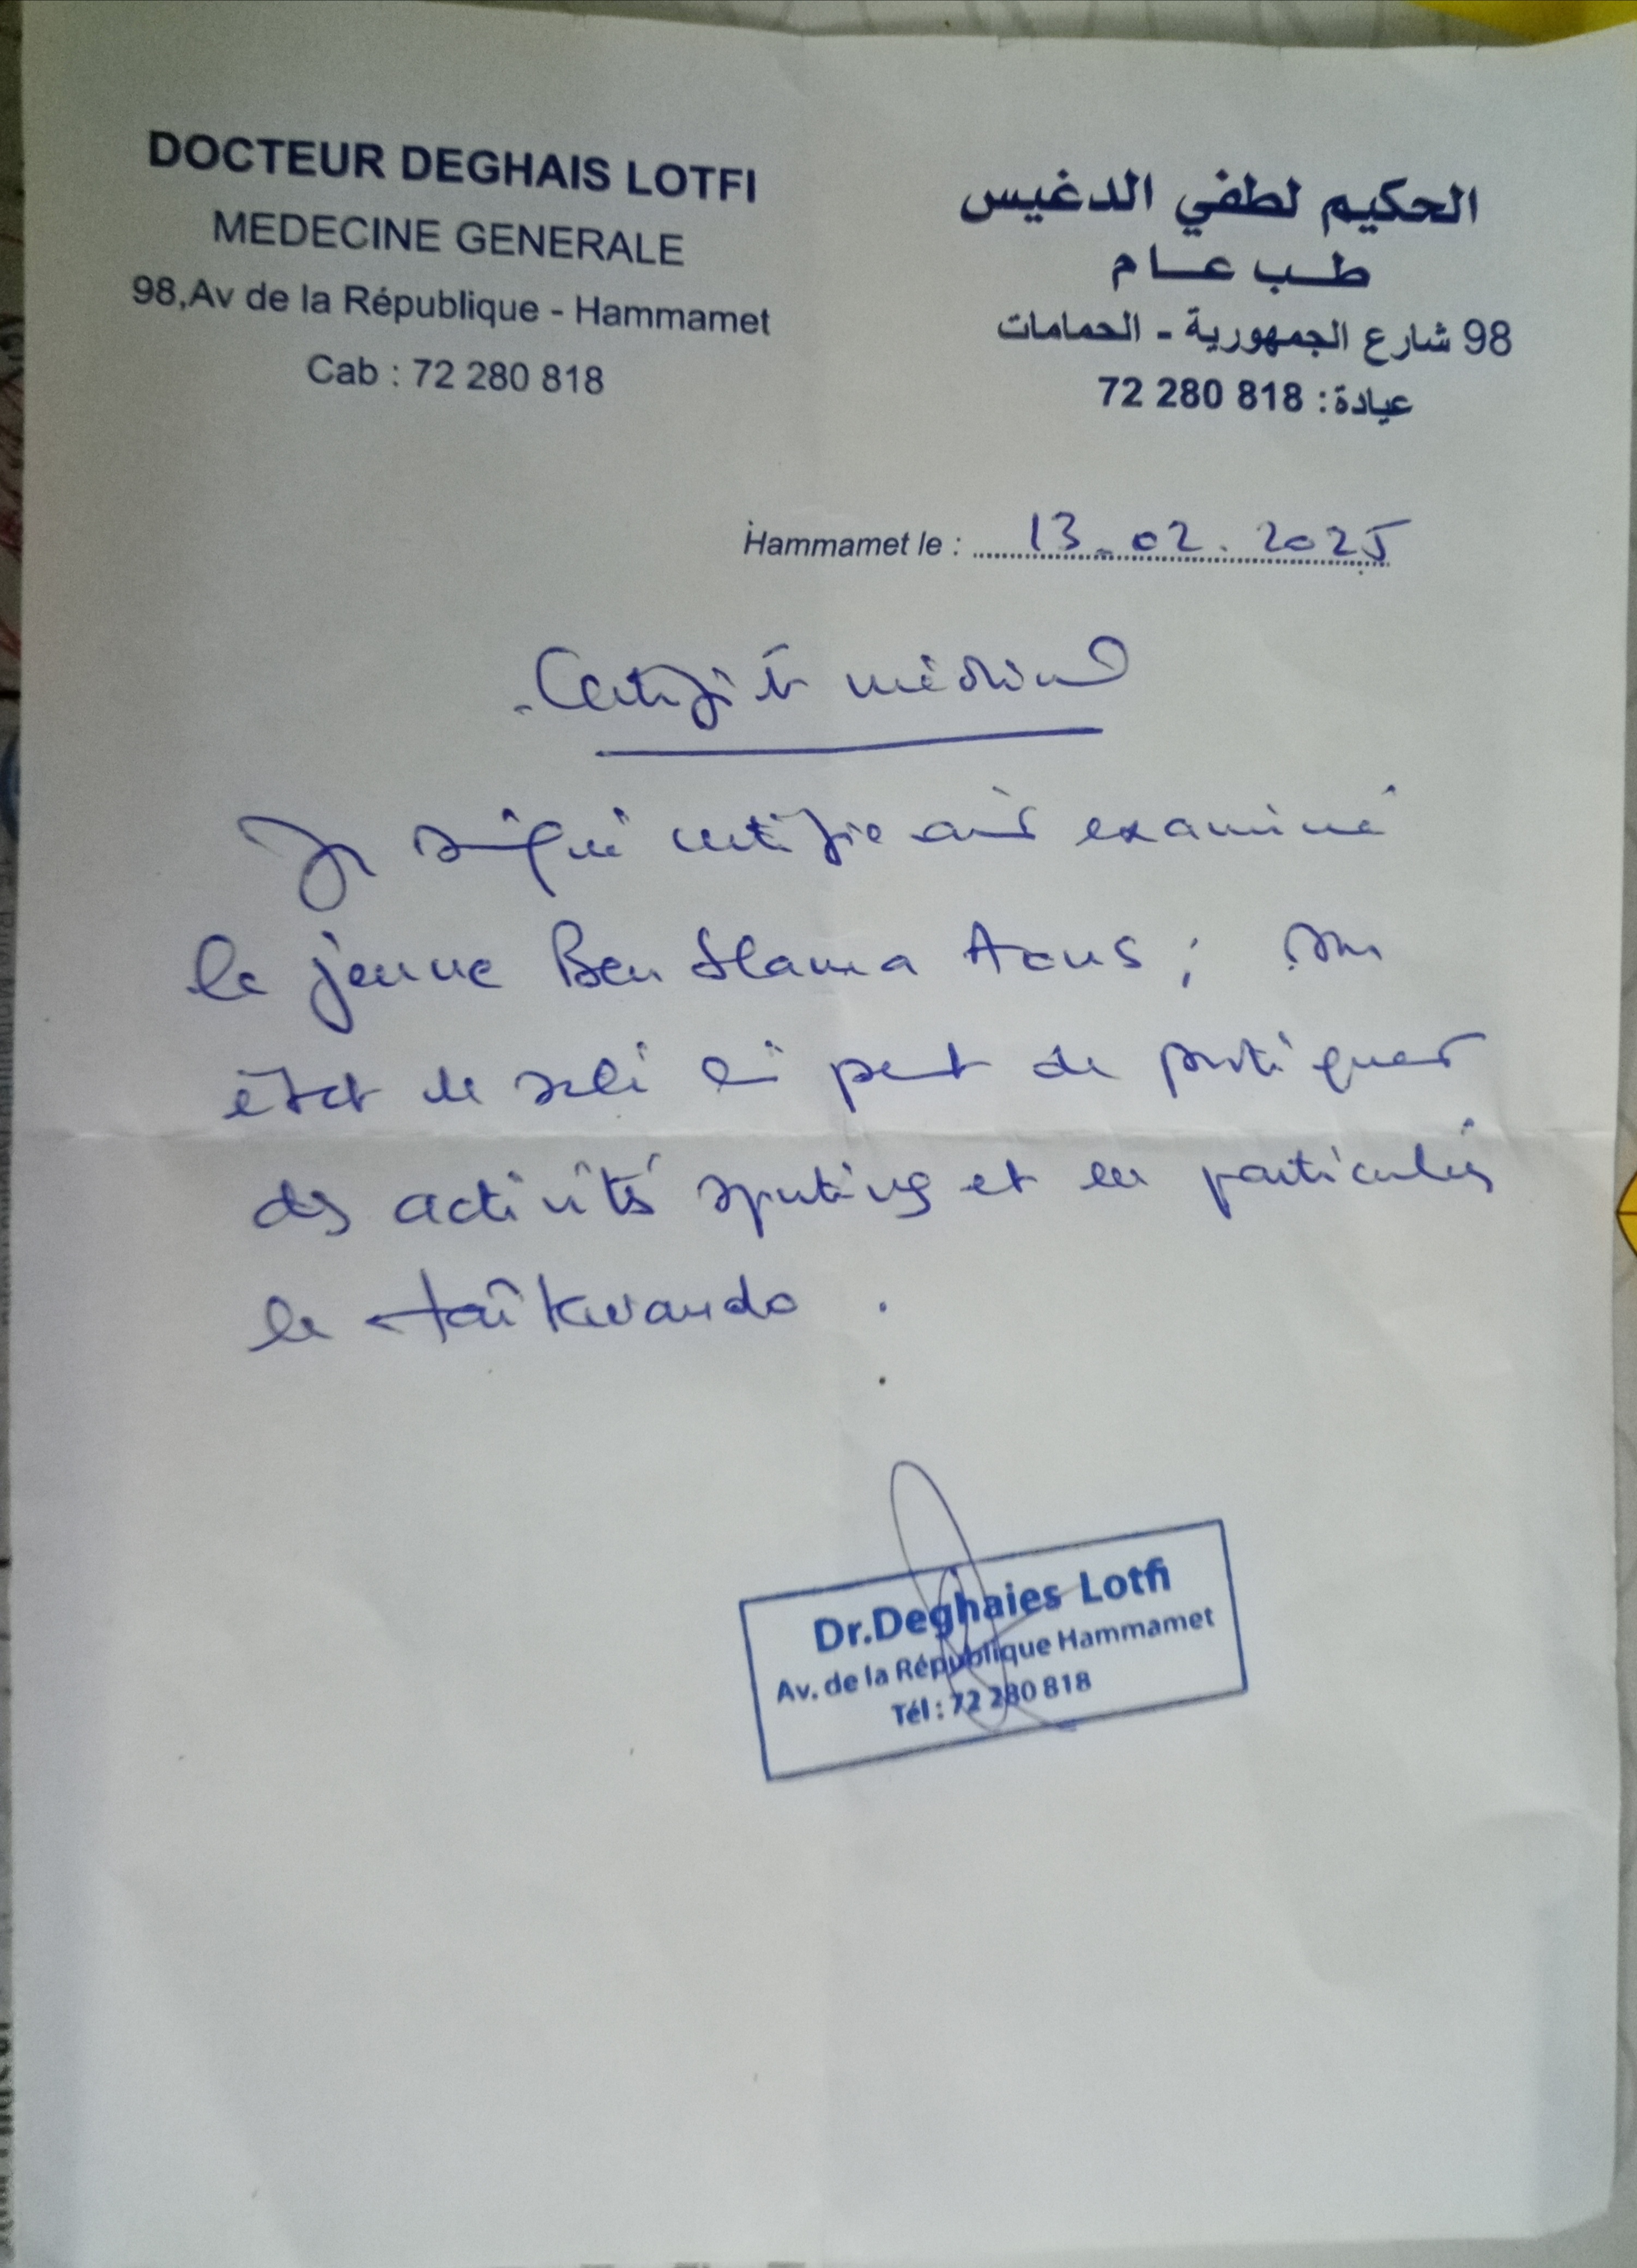 DOCTEUR DEGHAIS LOTFI
MEDECINE GENERALE
98,Av de la République - Hammamet
Cab : 72 280 818
الحكيم لطفي الدغيس
طب عام
98 شارع الجمهورية - الحمامات
عيادة: 818 280 72
Hammamet le : 13-02.2025
Certificat médical
Je soussigné certifie avoir examiné
le jeune Ben Slama Aous ; son
état de santé lui permet de pratiquer
des activités sportives et en particulier
le taîkwando.
Dr.Deghaies Lotfi
Av. de la République Hammamet
Tél : 72 280 818